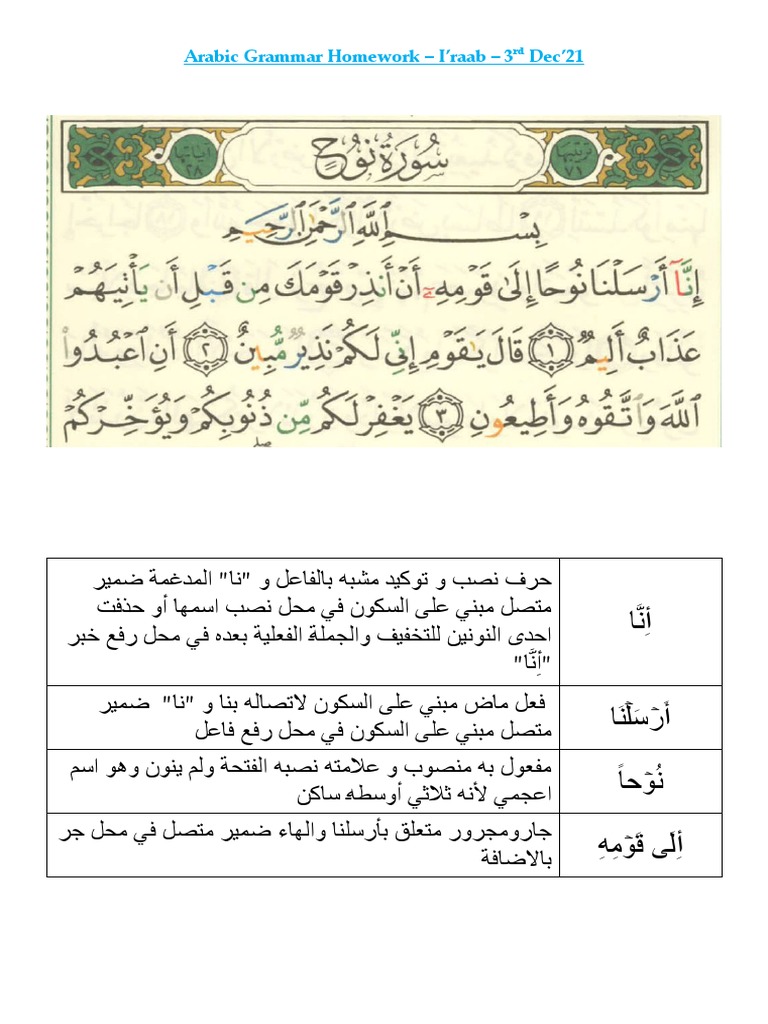 Arabic Grammar Homework – I’raab – 3rd Dec’21
ترتيبها ٧١
سُورَةُ نُوحٍ
آياتها ٢٨
بِسْمِ ٱللَّهِ ٱلرَّحْمَٰنِ ٱلرَّحِيمِ
إِنَّآ أَرْسَلْنَا نُوحًا إِلَىٰ قَوْمِهِۦٓ أَنْ أَنذِرْ قَوْمَكَ مِن قَبْلِ أَن يَأْتِيَهُمْ
عَذَابٌ أَلِيمٌ ۝١ قَالَ يَٰقَوْمِ إِنِّى لَكُمْ نَذِيرٌ مُّبِينٌ ۝٢ أَنِ ٱعْبُدُوا۟
ٱللَّهَ وَٱتَّقُوهُ وَأَطِيعُونِ ۝٣ يَغْفِرْ لَكُم مِّن ذُنُوبِكُمْ وَيُؤَخِّرْكُمْ
أِنَّا
حرف نصب و توكيد مشبه بالفاعل و "نا" المدغمة ضمير
متصل مبني على السكون في محل نصب اسمها أو حذفت
احدى النونين للتخفيف والجملة الفعلية بعده في محل رفع خبر
"أِنَّا"
أَرْسَلْنَا
فعل ماض مبني على السكون لاتصاله بنا و "نا" ضمير
متصل مبني على السكون في محل رفع فاعل
نُوْحاً
مفعول به منصوب و علامته نصبه الفتحة ولم ينون وهو اسم
اعجمي لأنه ثلاثي أوسطه ساكن
أِلَى قَوْمِهِ
جارومجرور متعلق بأرسلنا والهاء ضمير متصل في محل جر
بالاضافة